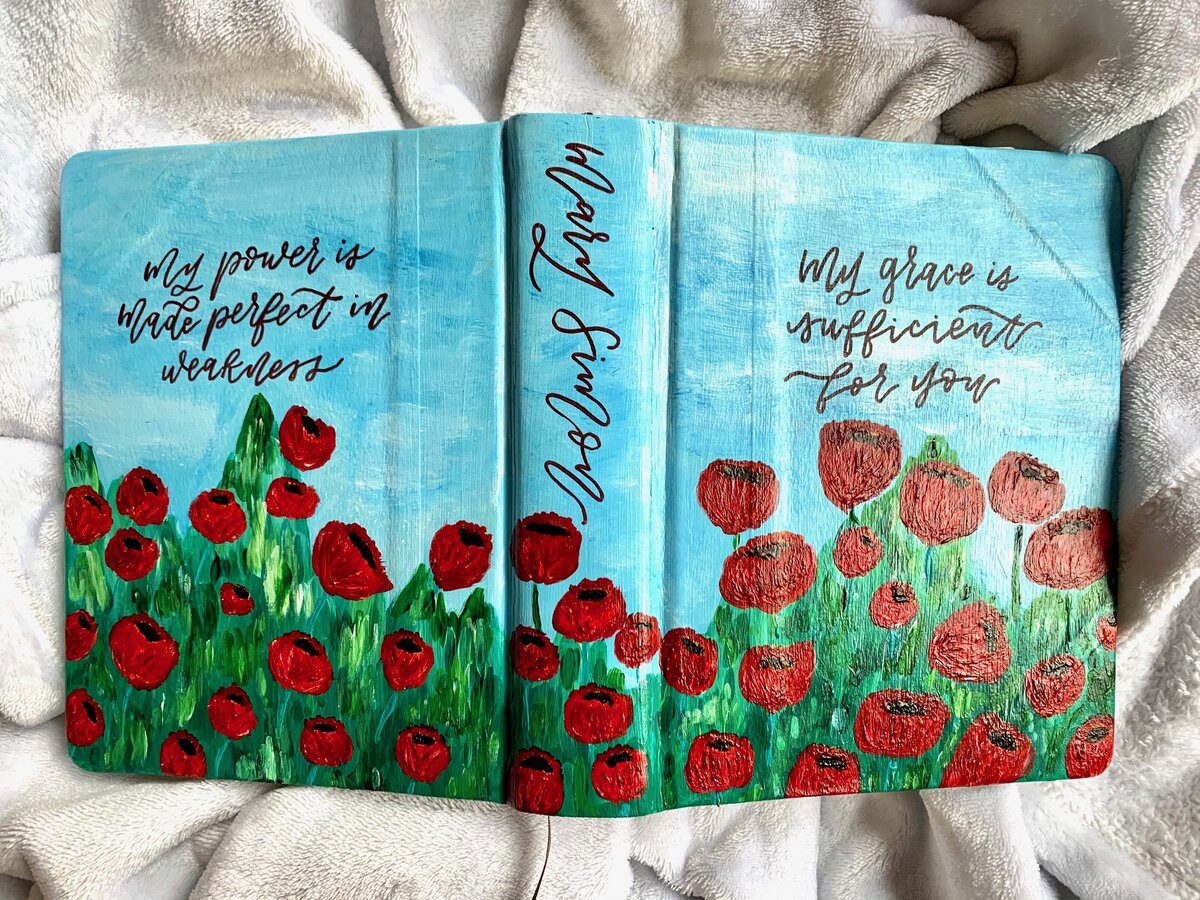 My power is
made perfect in
weakness
Mary Simon
My grace is
sufficient
for you